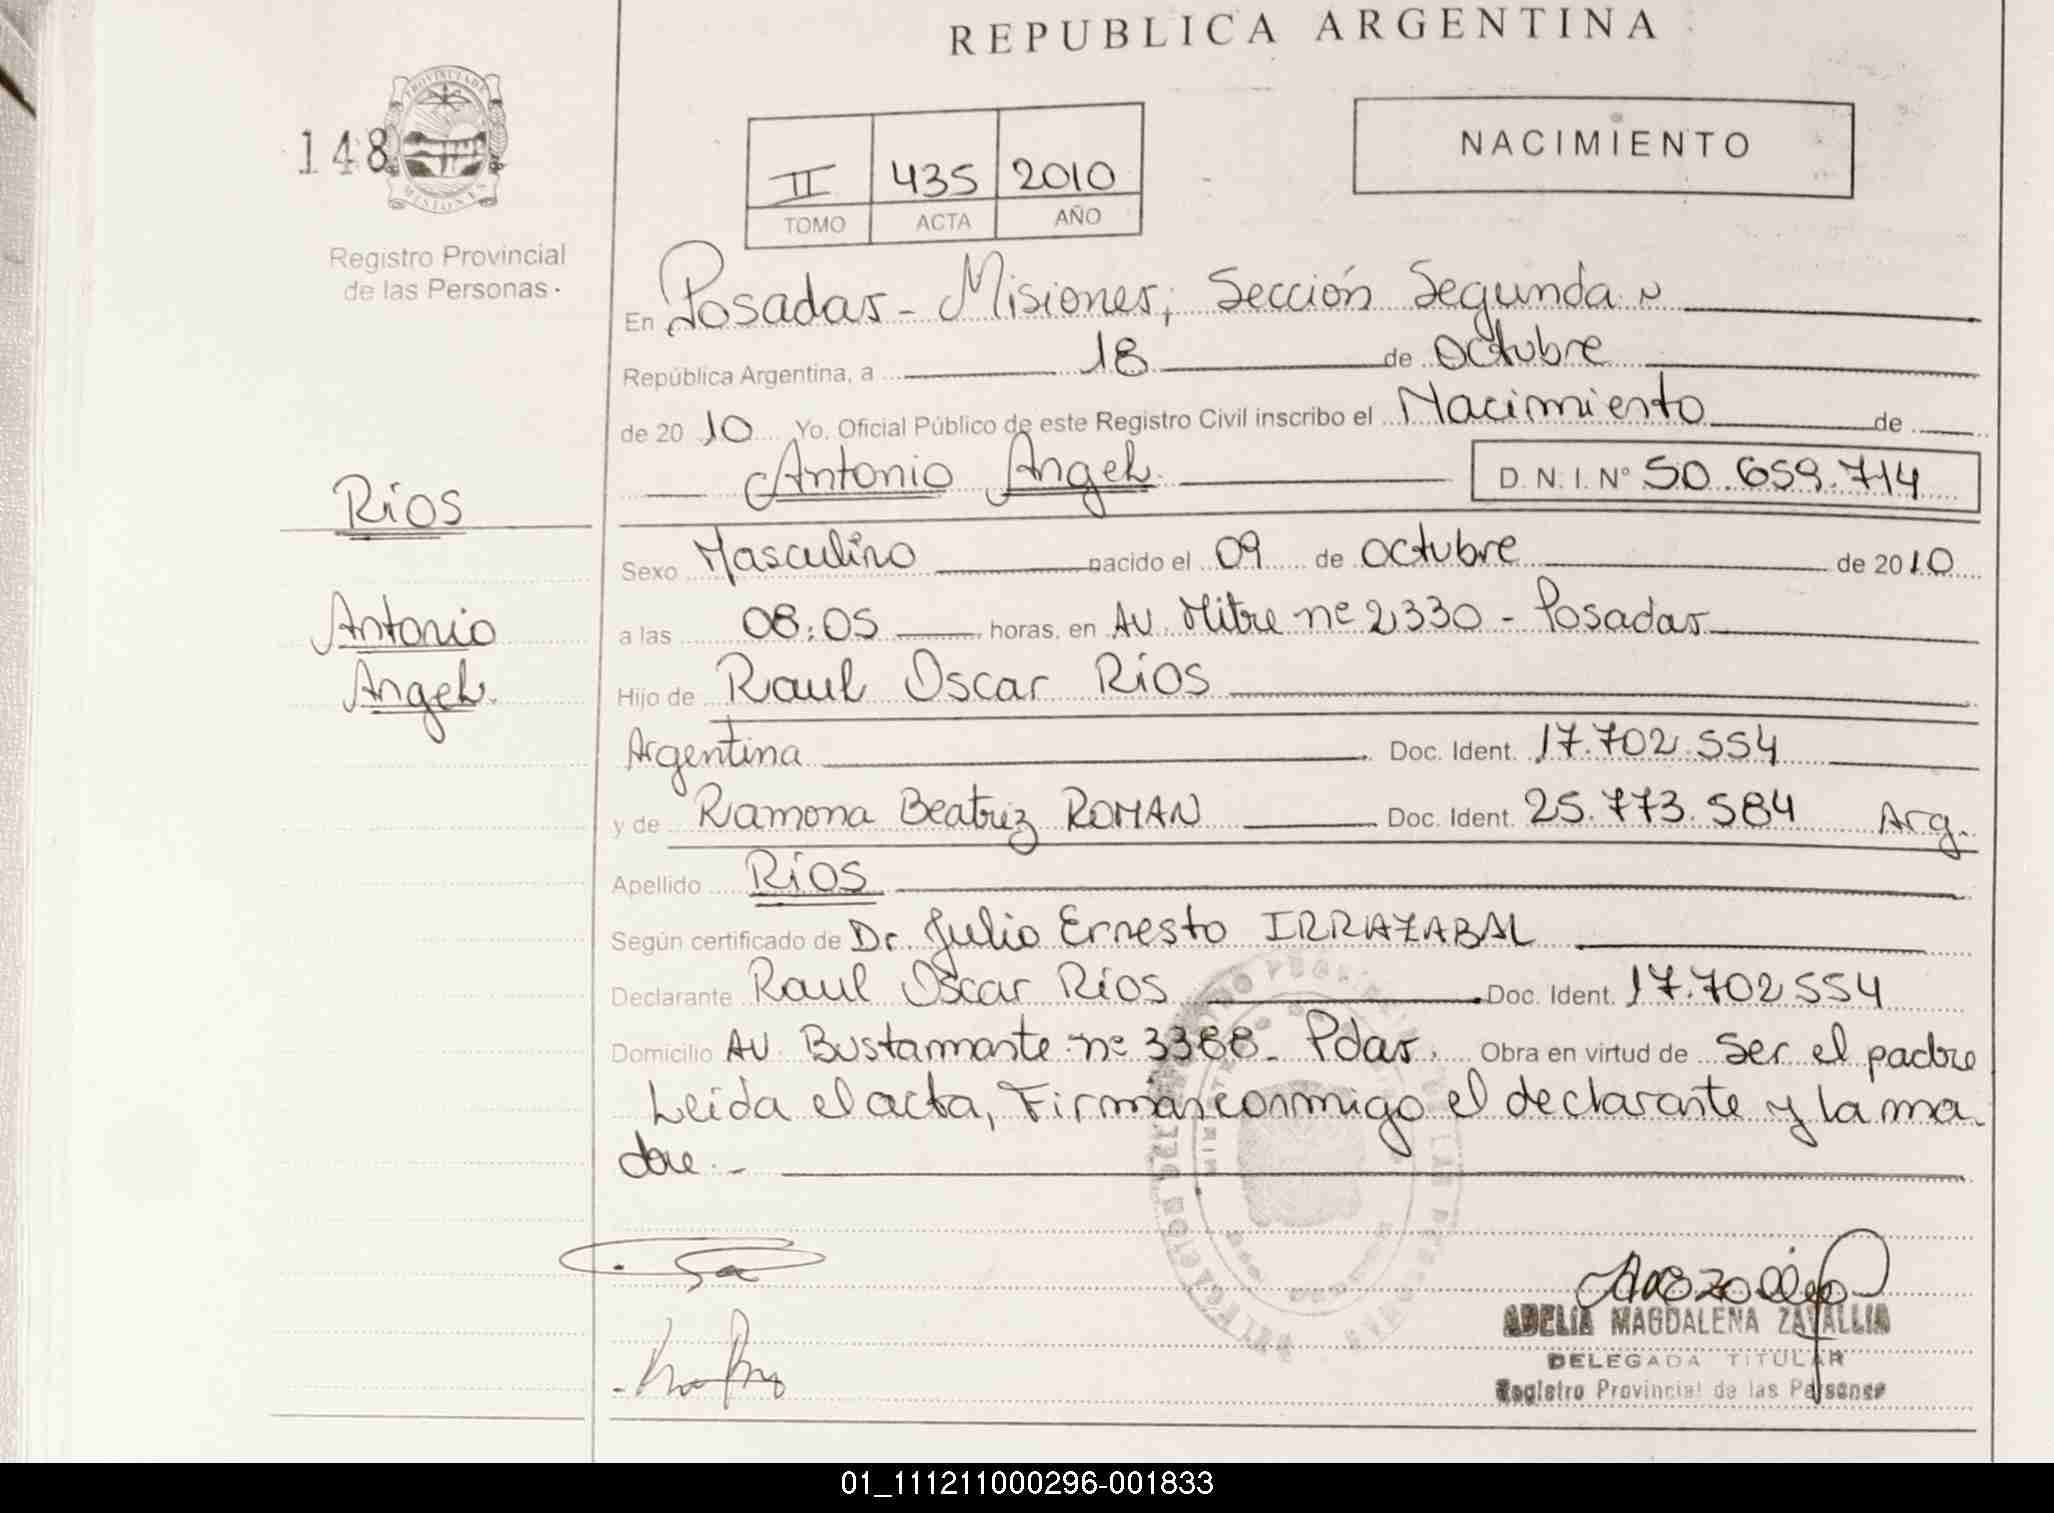 REPUBLICA ARGENTINA
148
PROVINCIA DE MISIONES
Registro Provincial
de las Personas
NACIMIENTO
II 435 2010
TOMO ACTA AÑO
En Posadas - Misiones; Sección Segunda
República Argentina, a 18 de Octubre
de 2010 Yo, Oficial Público de este Registro Civil inscribo el Nacimiento de
Antonio Angel D.N.I. Nº 50.659.714
Ríos
Antonio
Angel
Sexo Masculino nacido el 09 de Octubre de 2010
a las 08:05 horas, en AV. Mitre nº 2330 - Posadas
Hijo de Raul Oscar Ríos
Argentina Doc. Ident. 17.702.554
y de Ramona Beatriz ROMAN Doc. Ident. 25.773.584 Arg.
Apellido Ríos
Según certificado de Dr. Julio Ernesto IRRAZABAL
Declarante Raul Oscar Ríos Doc. Ident. 17.702554
Domicilio AV. Bustamante nº 3388 - Pdas. Obra en virtud de Ser el padre
Leida el acta, Firman conmigo el declarante y la ma
dre.-
ADELIA MAGDALENA ZAVALLIA
DELEGADA TITULAR
Registro Provincial de las Personas
01_111211000296-001833